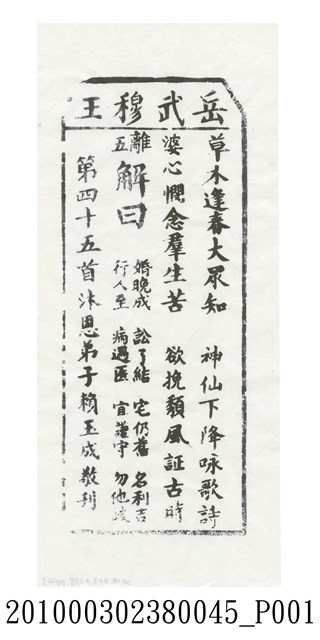 岳武穆王
草木逢春大眾知　神仙下降咏歌詩
婆心憫念羣生苦　欲挽頹風証古時
離五
解曰
婚晚成　訟了結　宅仍舊　名利吉
行人至　病遇医　宜謹守　勿他
第四十五首沐恩弟子賴玉成敬刊
201000302380045_P001